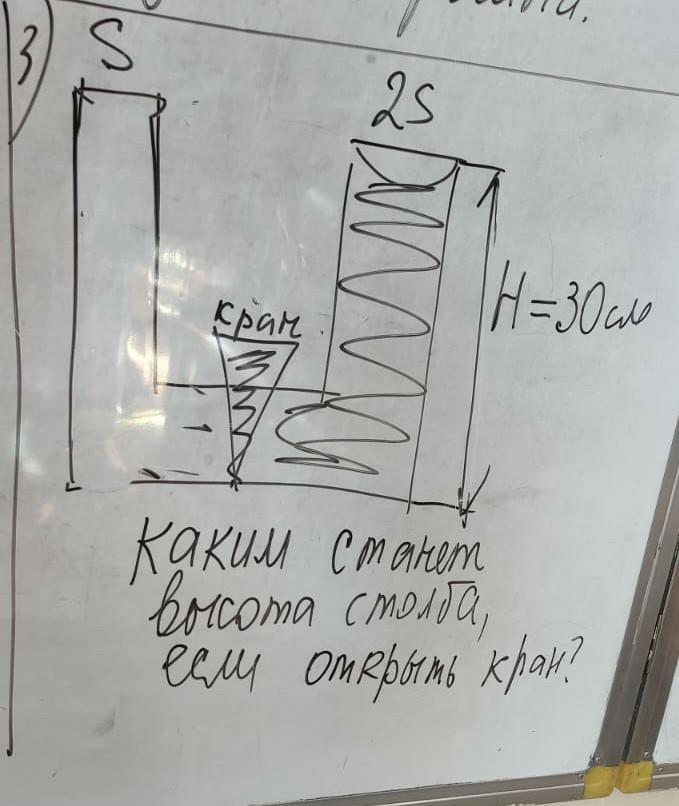 3
S
2S
кран
H=30см
Каким станет
высота столба,
если открыть кран?